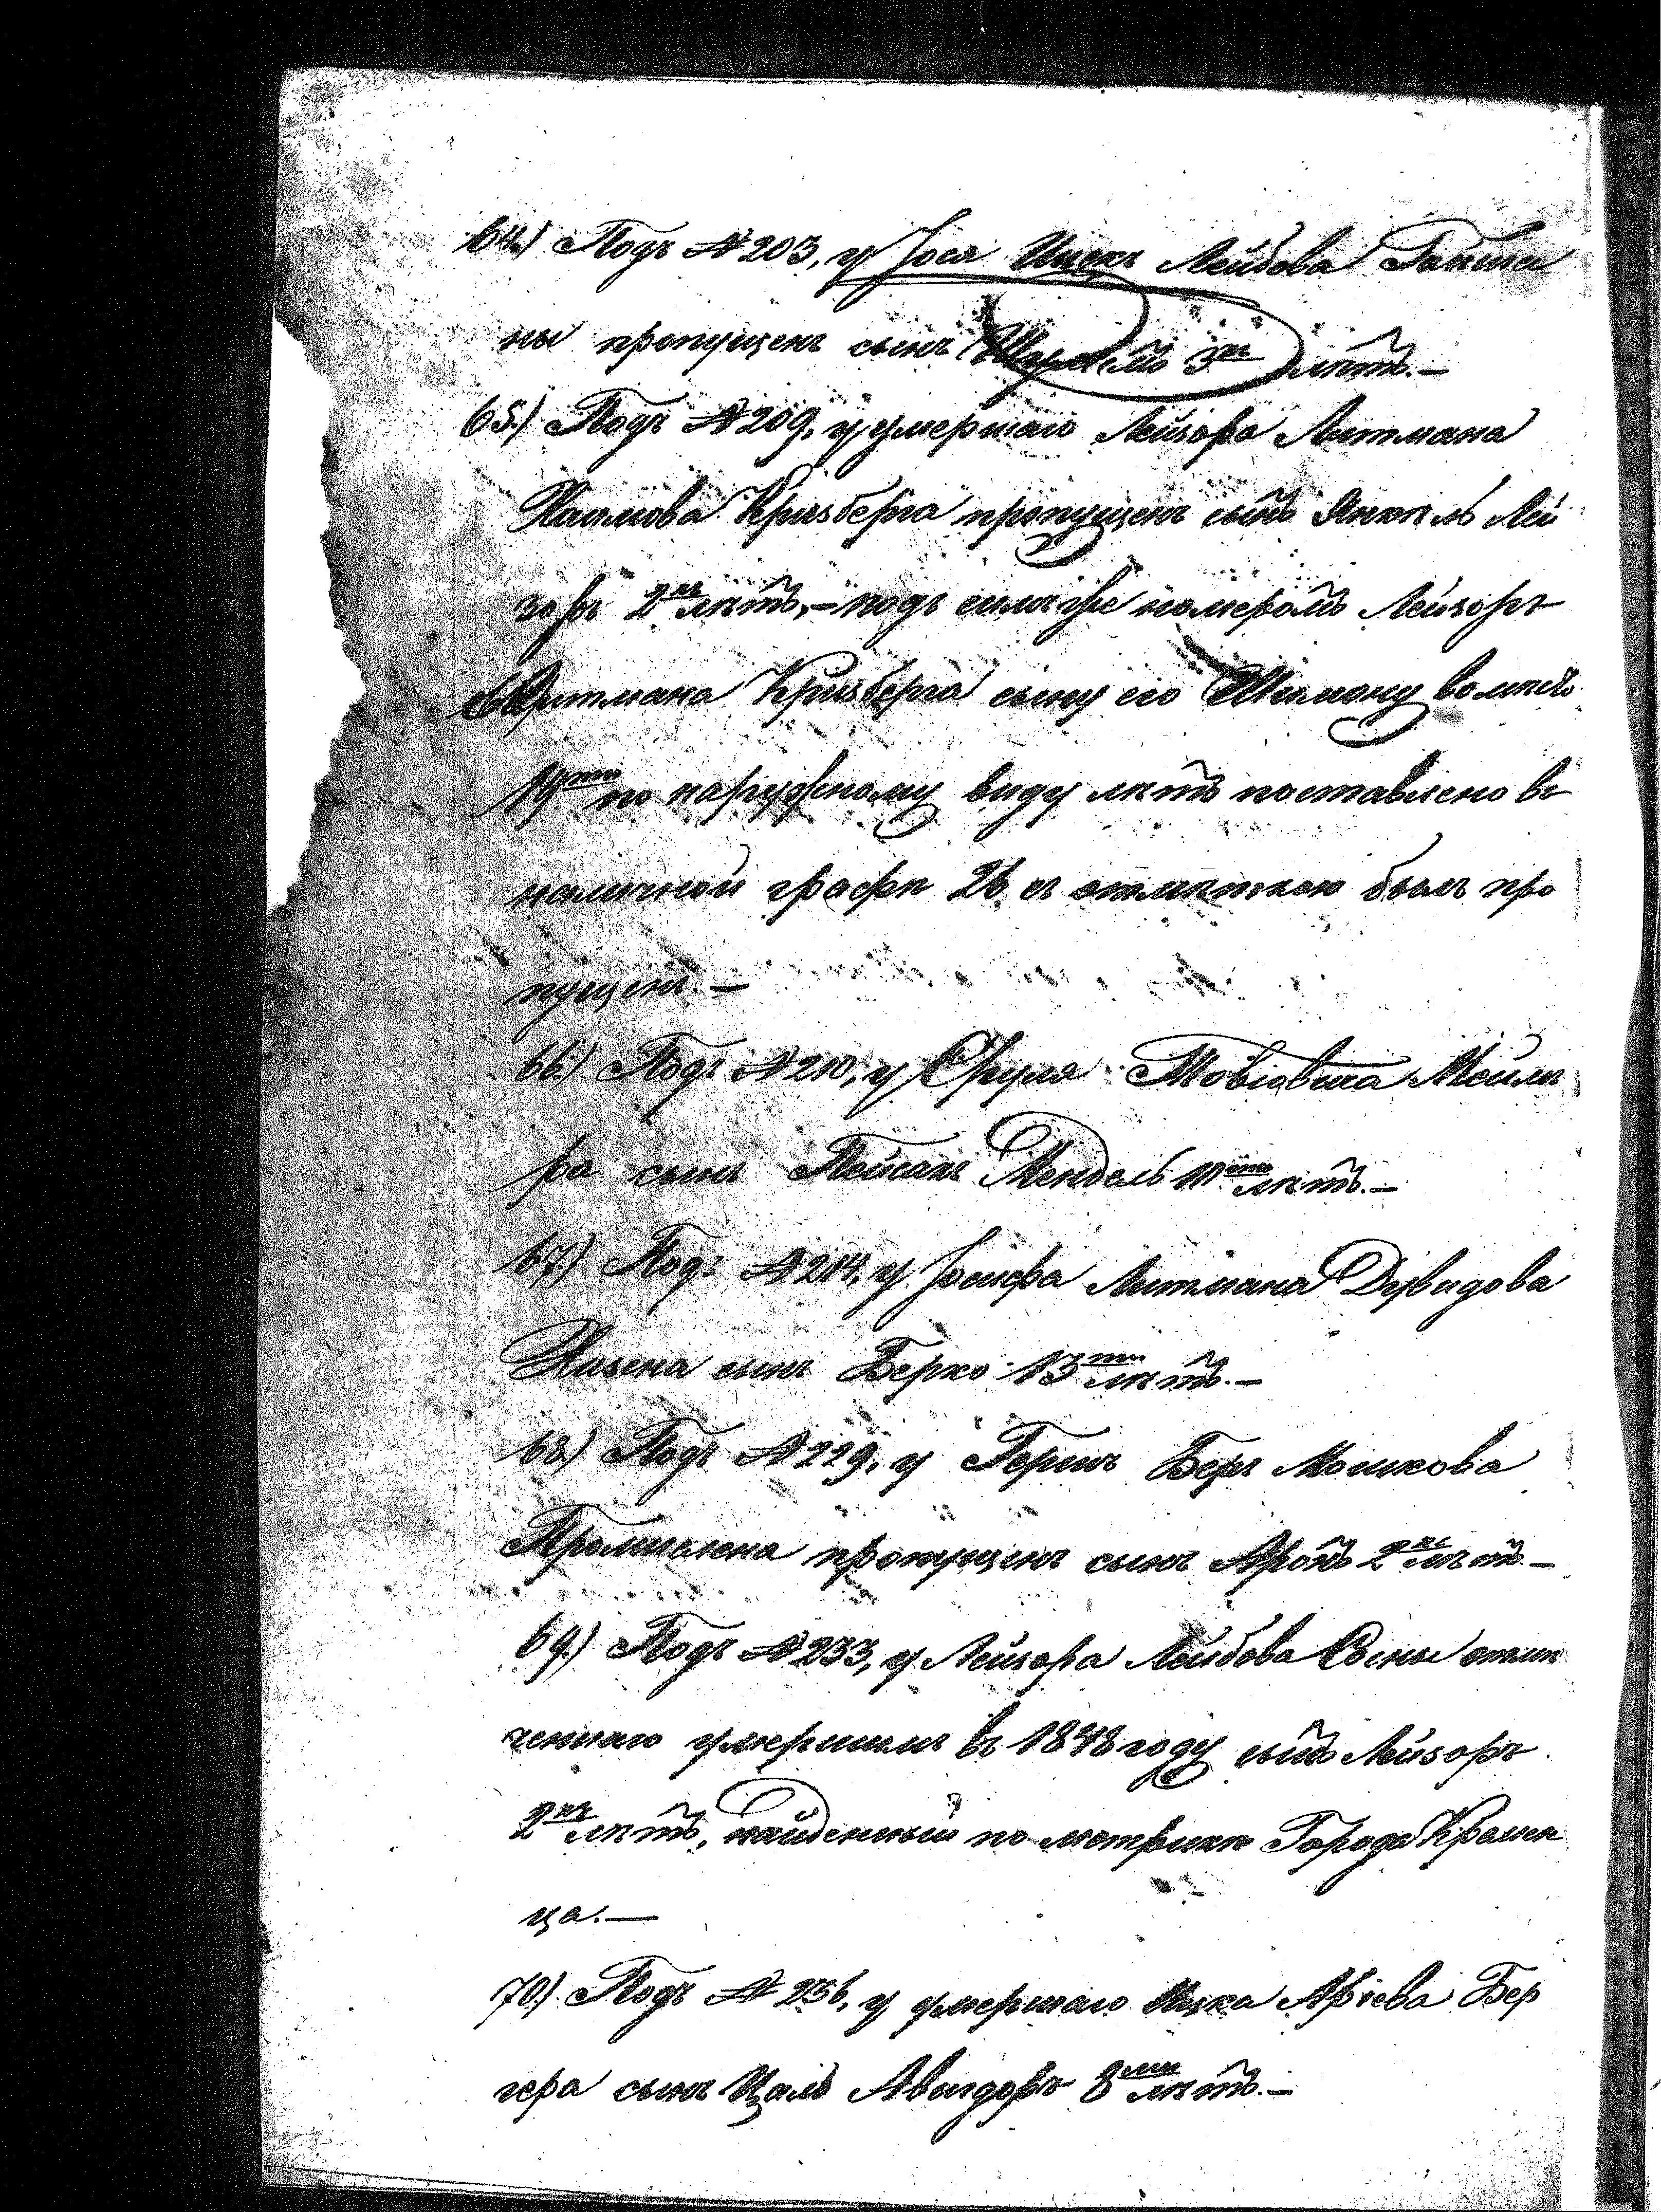 64.) Подъ №203, у Іося Ицекъ Лейбова Гойши
ны пропущенъ сынъ 3хъ лѣтъ.—
65.) Подъ №209, у умершаго Лейзора Литмана
Хаимова Кризберга пропущенъ сынъ Янкель Лей
зоръ 2хъ лѣтъ,— подъ симъ же номеромъ Лейзоръ
Литмана Кризберга сыну его Шимону вомѣсто
19ти по наружному виду лѣтъ поставлено въ
наличной графѣ 26 съ отмѣткою былъ про
пущенъ.—
66.) Подъ №210, у Сруля Товіовича Мейле
ра сынъ Пейсахъ Мендель лѣтъ.—
67.) Подъ №214, у Іосифа Литмана Дувидова
Хазена сынъ Берко 13ти лѣтъ.—
68.) Подъ №229, у Гершъ Беръ Мошкова
пропущенъ сынъ Аронъ 2хъ лѣтъ.—
69.) Подъ №233, у Лейзора Лейбова отмѣ
ченнаго умершимъ въ 1848 году сынъ Лейзоръ
2хъ лѣтъ, найденный по метрикѣ Города Кремен
ца.—
70.) Подъ №236, у умершаго Ицка Аріева Бер
гера сынъ Цаль Авигдоръ 8ми лѣтъ.—